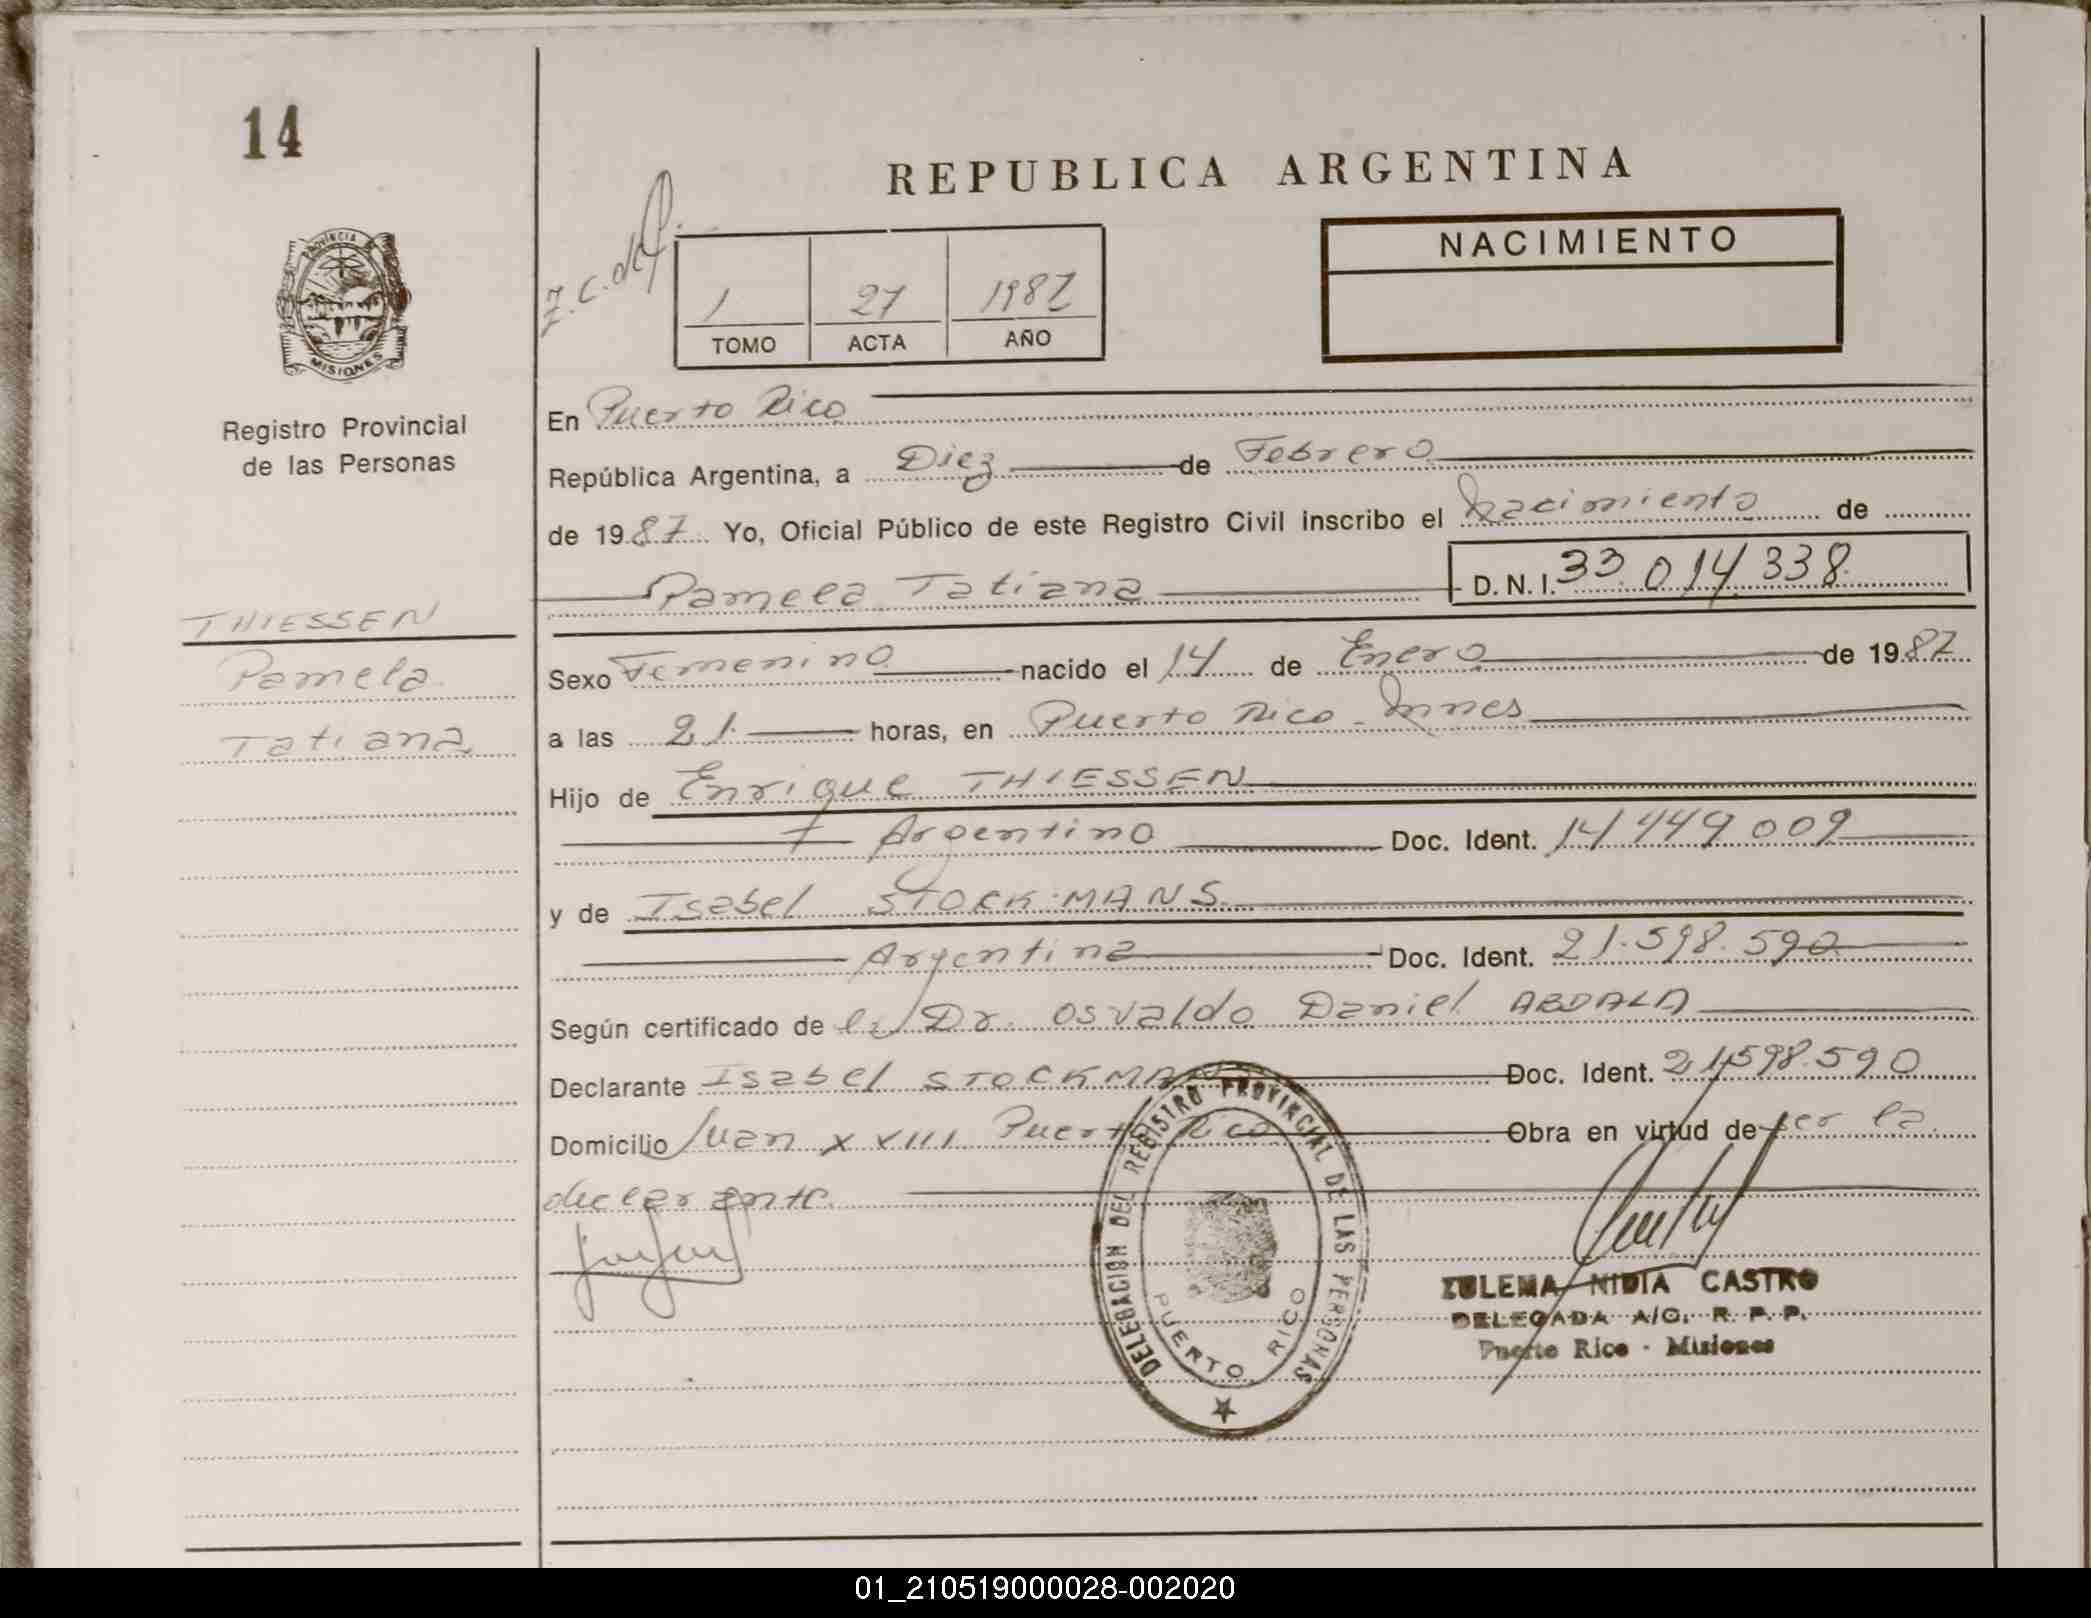 14
REPUBLICA ARGENTINA
PROVINCIA
MISIONES
Registro Provincial
de las Personas
1 27 1987
TOMO ACTA AÑO
NACIMIENTO
En Puerto Rico
República Argentina, a Diez de Febrero
de 1987 Yo, Oficial Público de este Registro Civil inscribo el Nacimiento de
Pamela Tatiana D. N. I. 33.014.338
THIESSEN
Pamela
Tatiana
Sexo Femenino nacido el 14 de Enero de 1987
a las 21 horas, en Puerto Rico - Mnes
Hijo de Enrique THIESSEN
Argentino Doc. Ident. 14.449.009
y de Isabel STOCKMANS
Argentina Doc. Ident. 21.598.590
Según certificado de Dr. Osvaldo Daniel ABDALA
Declarante Isabel STOCKMANS Doc. Ident. 21.598.590
Domicilio Juan XXIII Puerto Rico Obra en virtud de ser la
declarante.
DELEGACION DEL REGISTRO PROVINCIAL DE LAS PERSONAS
PUERTO RICO
ZULEMA NIDIA CASTRO
DELEGADA A/C. R. P. P.
Puerto Rico - Misiones
01_210519000028-002020